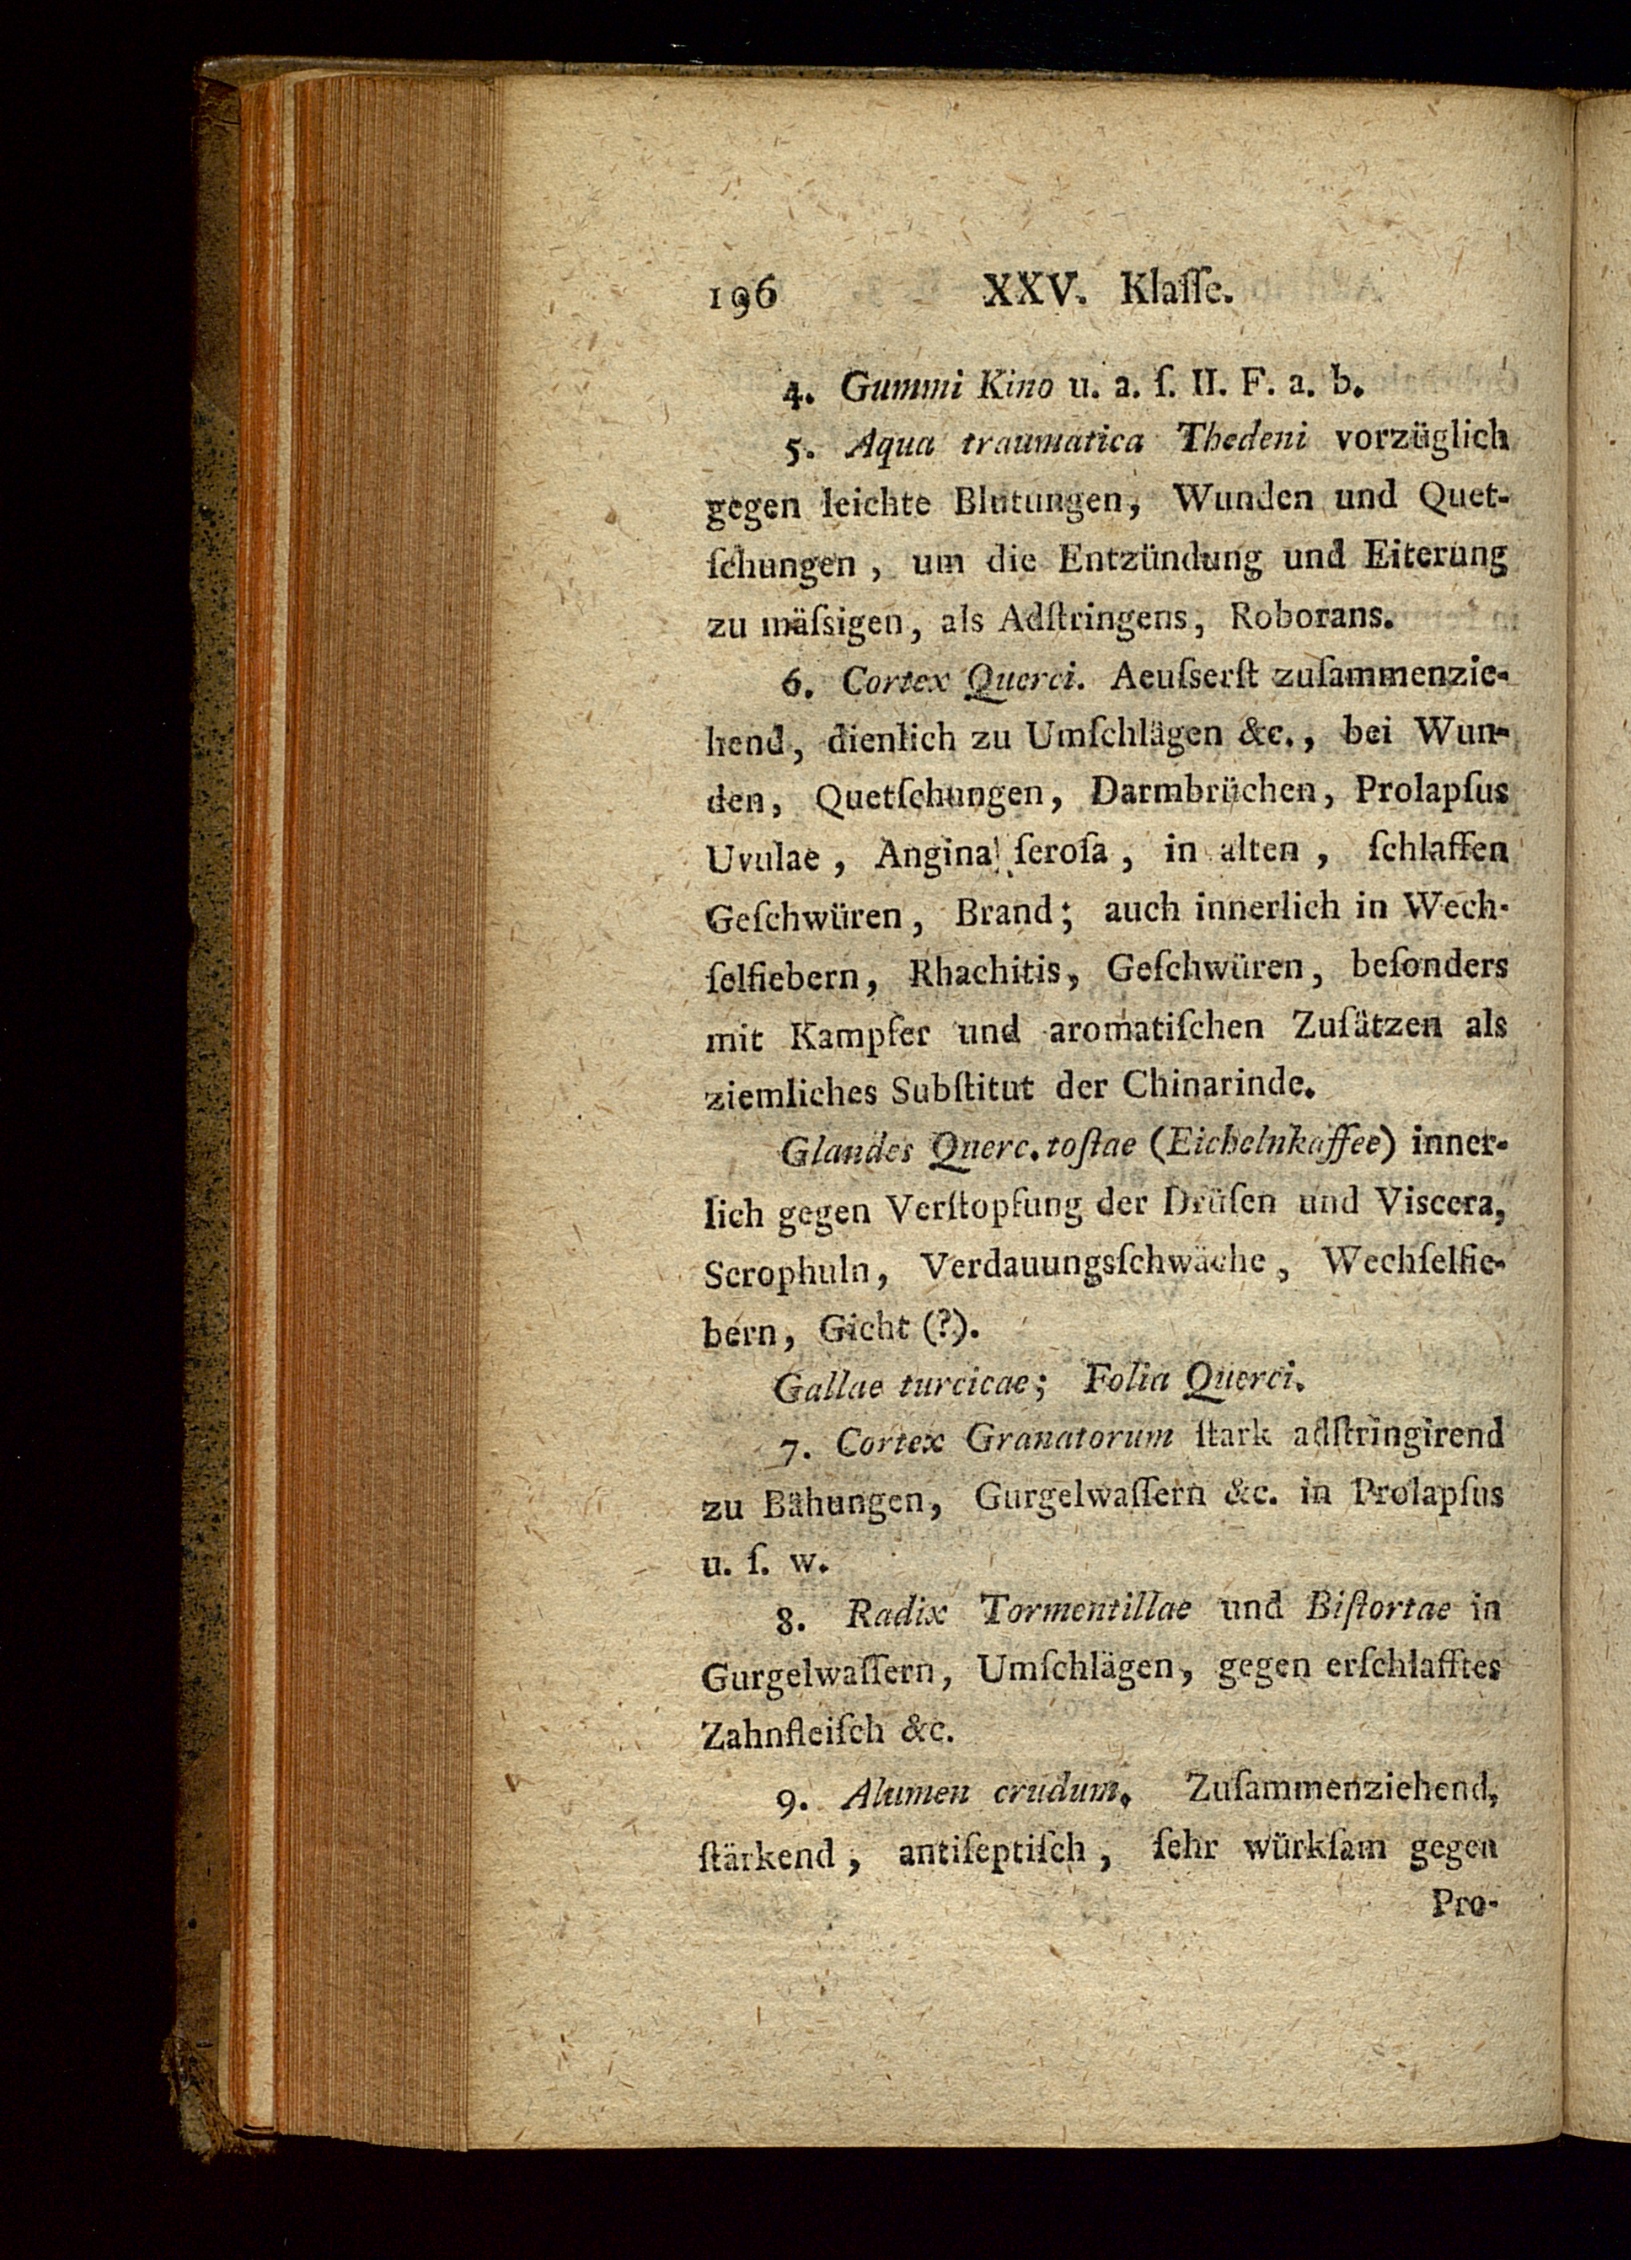 196 XXV. Klaſſe.
4. Gummi Kino u. a. ſ. II. F. a. b.
5. Aqua traumatica Thedeni vorzüglich
gegen leichte Blutungen, Wunden und Quet-
ſchungen, um die Entzündung und Eiterung
zu mäſsigen, als Adſtringens, Roborans.
6. Cortex Querci. Aeuſserſt zuſammenzie-
hend, dienlich zu Umſchlägen &c., bei Wun-
den, Quetſchungen, Darmbrüchen, Prolapſus
Uvulae, Angina ſeroſa, in alten, ſchlaffen
Geſchwüren, Brand; auch innerlich in Wech-
ſelfiebern, Rhachitis, Geſchwüren, beſonders
mit Kampfer und aromatiſchen Zuſätzen als
ziemliches Subſtitut der Chinarinde.
Glandes Querc. toſtae (Eichelnkaffee) inner-
lich gegen Verſtopfung der Drüſen und Viscera,
Scrophuln, Verdauungsſchwäche, Wechſelfie-
bern, Gicht (?).
Gallae turcicae; Folia Querci.
7. Cortex Granatorum ſtark adſtringirend
zu Bähungen, Gurgelwaſſern &c. in Prolapſus
u. ſ. w.
8. Radix Tormentillae und Biſtortae in
Gurgelwaſſern, Umſchlägen, gegen erſchlafftes
Zahnfleiſch &c.
9. Alumen crudum. Zuſammenziehend,
ſtärkend, antiſeptiſch, ſehr würkſam gegen
Pro-